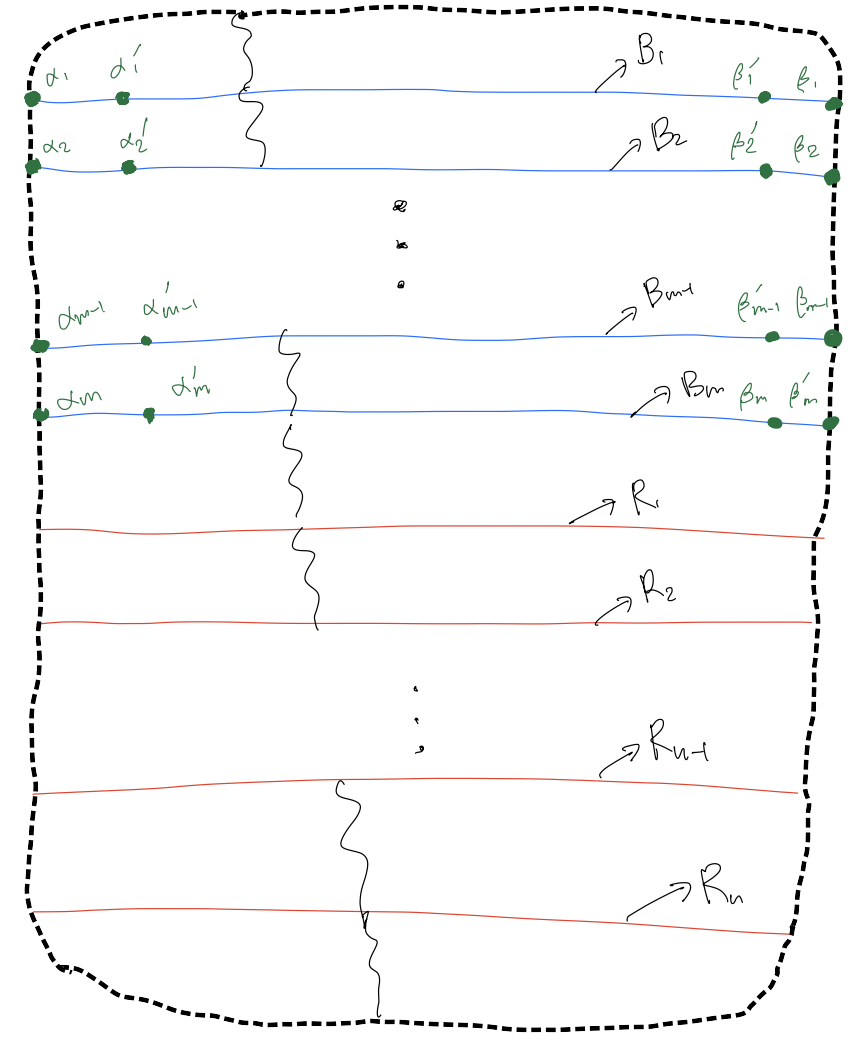 B₁
α₁ α₁′ β₁′ β₁
B₂
α₂ α₂′ β₂′ β₂
Bₘ₋₁
αₘ₋₁ α′ₘ₋₁ β′ₘ₋₁ βₘ₋₁
Bₘ
αₘ α′ₘ βₘ β′ₘ
R₁
R₂
Rₙ₋₁
Rₙ